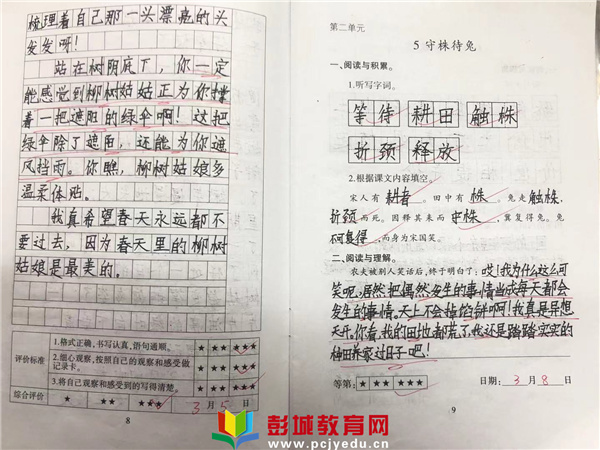 梳理着自己那一头漂亮的头
发发呀！
站在树阴底下，你一定
能感觉到柳树姑姑正为你撑
着一把遮阳的绿伞啊！这把
绿伞除了遮阳，还能为你遮
风挡雨。你瞧，柳树姑娘多
温柔体贴。
我真希望春天永远都不
要过去，因为春天里的柳树
姑娘是最美的。
评价标准
1.格式正确，书写认真，语句通顺。
★ ★★ ★★★
2.细心观察，按照自己的观察和感受做
记录卡。
★ ★★ ★★★
3.将自己观察和感受到的写得清楚。
★ ★★ ★★★
综合评价
★ ★★ ★★★
3月5日
8
第二单元
5 守株待兔
一、阅读与积累。
1.听写字词。
等待 耕田 触株
折颈 释放
2.根据课文内容填空。
宋人有耕者。田中有株。兔走触株，
折颈而死。因释其耒而守株，冀复得兔。兔
不可复得，而身为宋国笑。
二、阅读与理解。
农夫被别人笑话后，终于明白了：哎！我为什么这么可
笑呢，居然把偶然发生的事情当成每天都会
发生的事情。天上不会掉馅饼啊！我真是异想
天开。你看，我的田地都荒了，我还是踏踏实实的
种田养家过日子吧！
等第：★ ★★ ★★★
日期：3月8日
9
彭城教育网
www.pcjyedu.cn